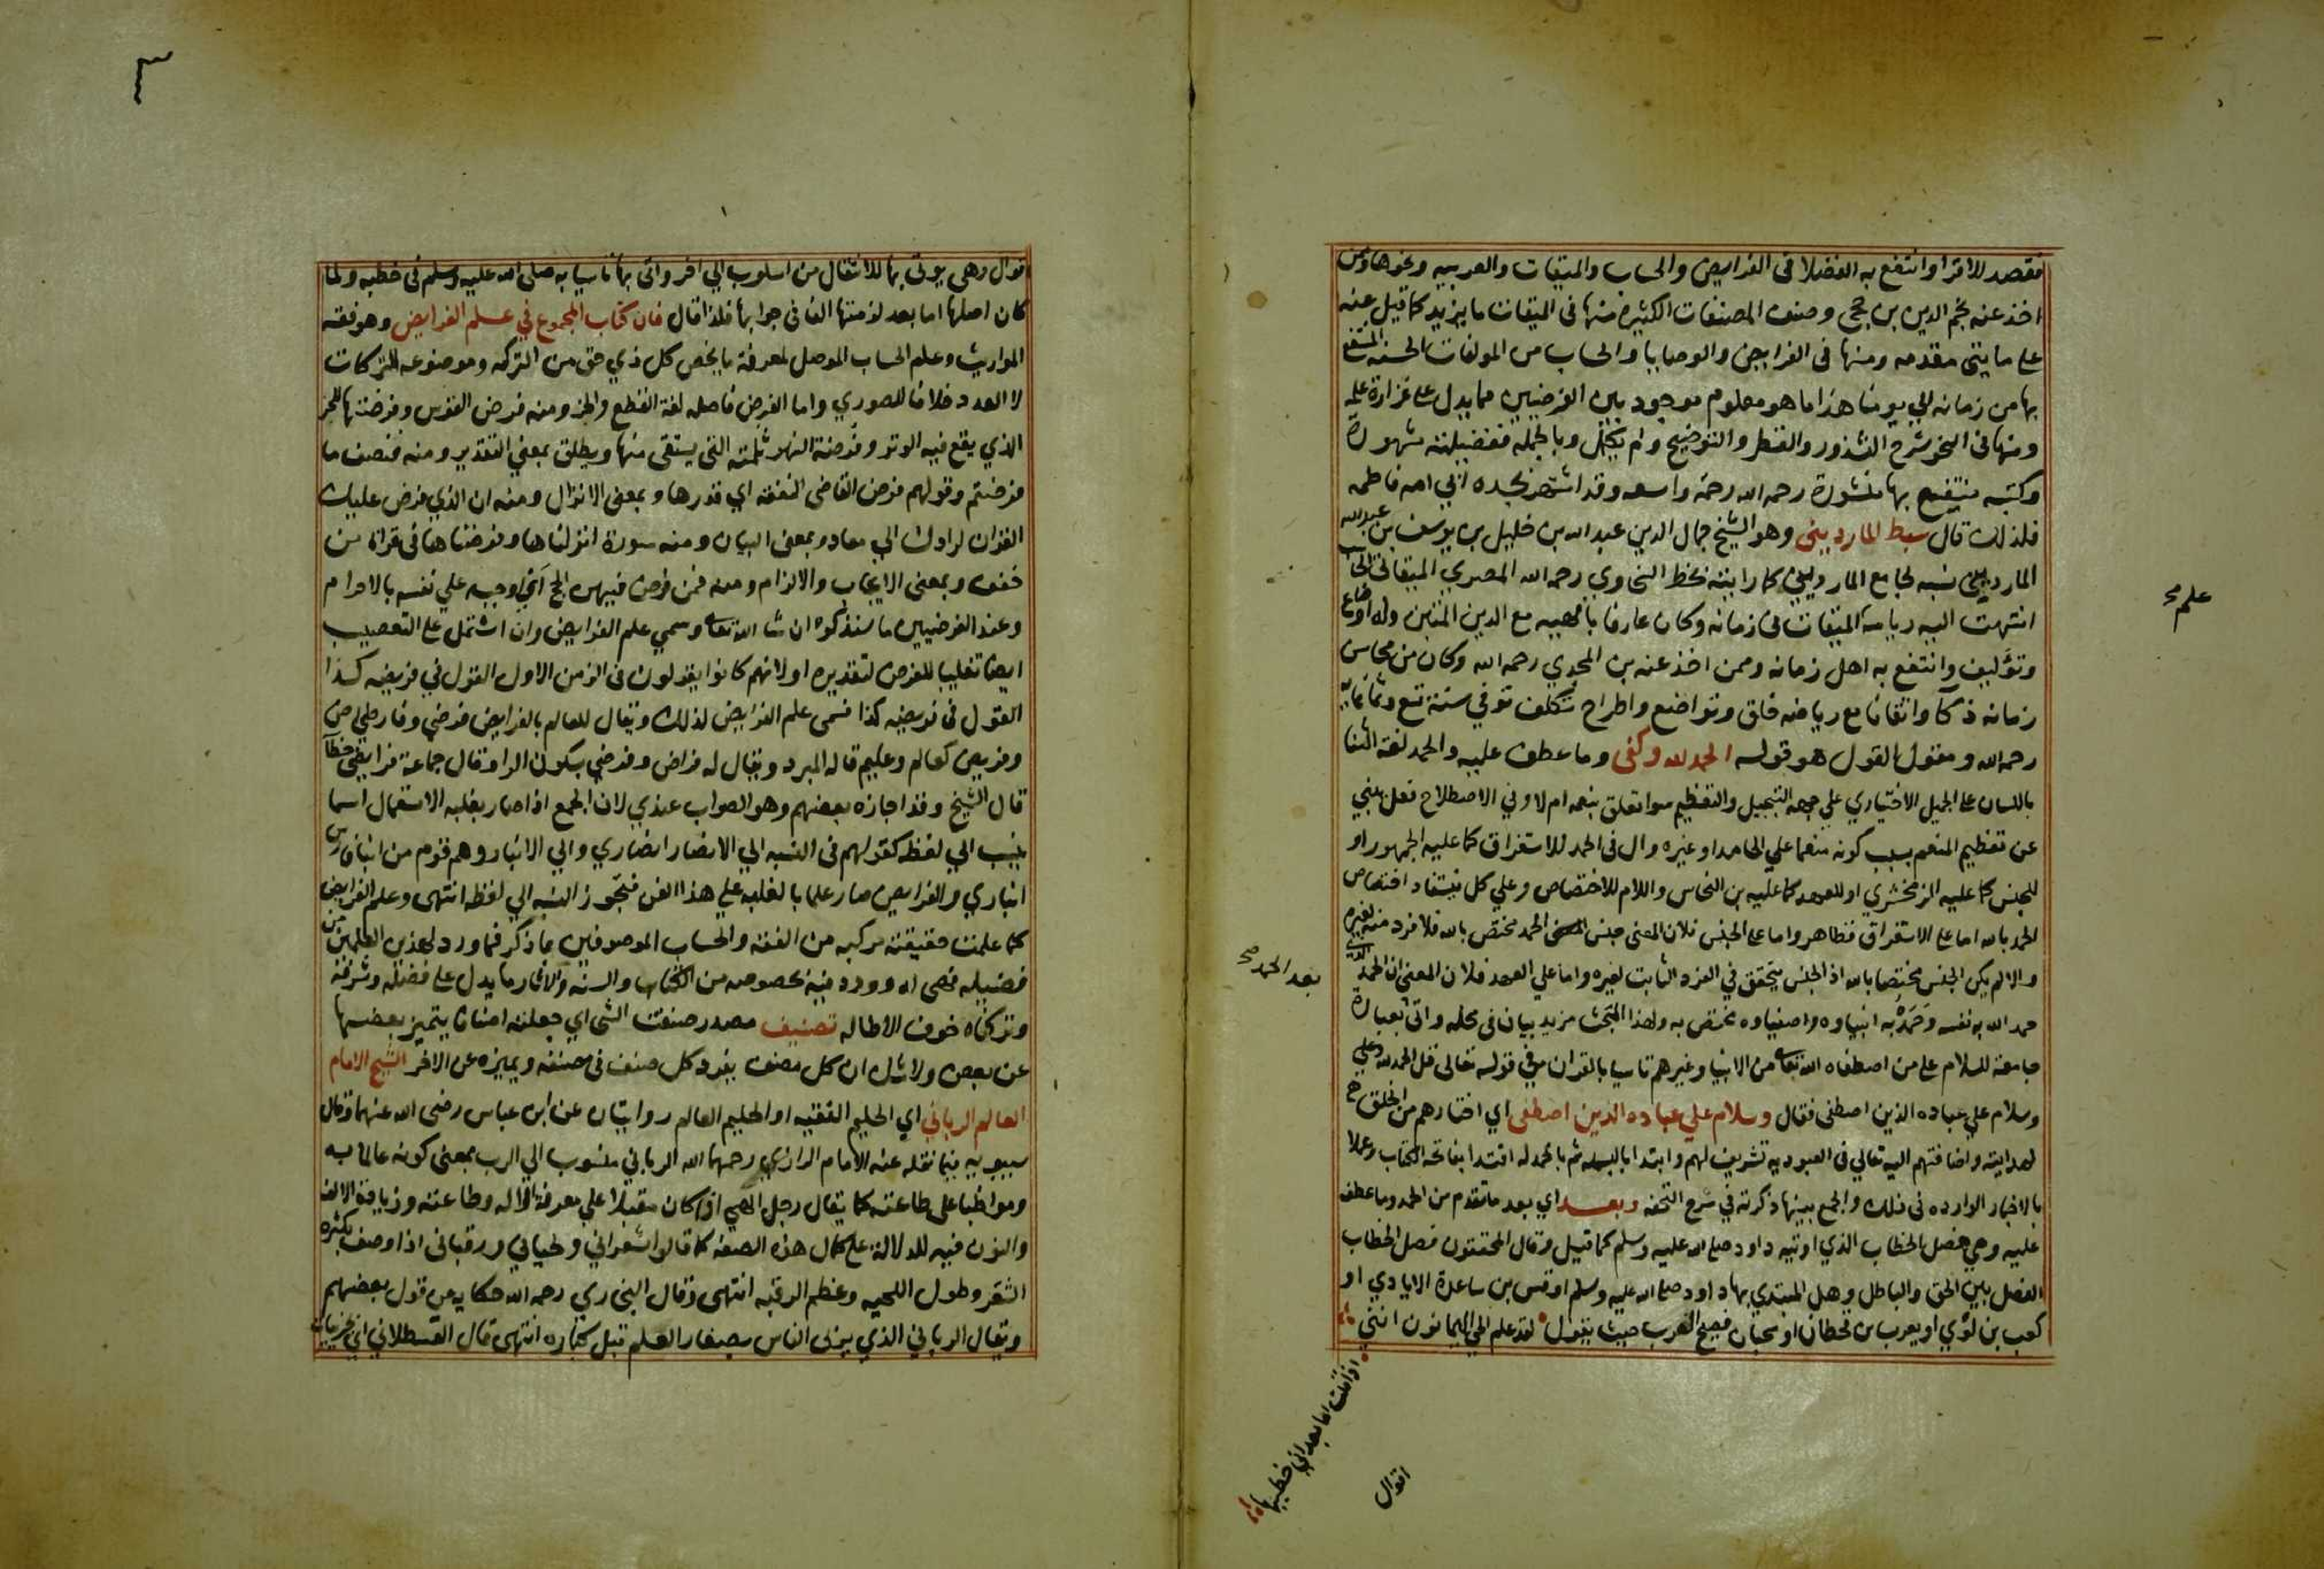 فقصد للاقرا وانتفع به الفضلا فى الفرايض والحساب والميقات والعربيه ونحوها وممن
اخذ عنه نجم الدين بن حجي وصنف المصنفات الكثيرة منها فى الميقات ما يزيد كما قيل عنه
على مايتى مقدمه ومنها فى الفرايض والوصايا والحساب من المولفات الحسنه المنتفع
بها من زمانه الي يومنا هذا ما هو معلوم موجود بين الفرضيين مما يدل على غزارة علمه
ومنها فى النحو شرح الشذور والقطر والتوضيح ولم يكمل وبالجمله ففضيلته شهورة
وكتبه منتفع بها منشورة رحمه الله رحمة واسعه وقد اشتهر بجده ابي امه فاطمه
فلذلك قال سبط المارديني وهو الشيخ جمال الدين عبد الله بن خليل بن يوسف بن عبد الله
المارديني نسبه لجامع المارديني كما رايته بخط السخاوي رحمه الله المصري الميقاتي الحاسب
انتهت اليه رياسة الميقات فى زمانه وكان عارفا بالهييه مع الدين المتين وله اوضاع
وتؤاليف وانتفع به اهل زمانه وممن اخذ عنه بن المجدي رحمه الله وكان من محاسن
زمانه ذكآ واتقانا مع رياضه خلق وتواضع واطراح تكلف توفي سنة تسع وثمانمايه
رحمه الله ومقول القول هو قوله الحمد لله وكفى وما عطف عليه والحمد لغة الثنا
باللسان على الجميل الاختياري علي جهه التبجيل والتعظيم سوا تعلق بنعمه ام لا وفي الاصطلاح فعل ينبي
عن تعظيم المنعم بسبب كونه منعما علي الحامد او غيره وال فى الحمد للاستغراق كما عليه الجمهور او
للجنس كما عليه الزمخشري او للعهد كما عليه بن النحاس واللام للاختصاص وعلي كل يستفاد اختصاص
الحمد بالله اما على الاستغراق فظاهر واما على الجنس فلان المعنى جنس الحمد مختص بالله فلا فرد منه لغيره
والا لم يكن الجنس مختصا بالله اذ الجنس يتحقق في الفرد الثابت لغيره واما علي العهد فلان المعنى ان الحمد الذي
حمد الله به نفسه وحَمَدَه به انبياوه واصفياوه مختص به ولهذا المبحث مزيد بيان فى محله واتى بعبارة
جامعة للسلام على من اصطفاه الله تعالى من الانبيا وغيرهم تاسيا بالقران في قوله تعالى قل الحمد لله
وسلام علي عباده الذين اصطفى فقال وسلام علي عباده الذين اصطفى اي اختارهم من الخلق
لهدايته واضافتهم اليه تعالي فى العبوديه تشريف لهم وابتدا بالبسمله ثم بالحمد له اقتدا بفاتحة الكتاب وعملا
بالاخبار الوارده فى ذلك والجمع بينها ذكرته في شرح التحفه وبعد اي بعد ما تقدم من الحمد وما عطف
عليه وهي فصل الخطاب الذي اوتيه داود صلى الله عليه وسلم كما قيل وقال المحققون فصل الخطاب
الفصل بين الحق والباطل وهل المبتدي بها داود صلى الله عليه وسلم او قس بن ساعدة الايادي او
كعب بن لؤي او يعرب بن قحطان او سحبان فصيح العرب حيث يقول لقد علم الحي اليمانون انني
اذا قلت اما بعد اني خطيبها
اقوال
علم صح
بعد الحمد صح
٣
اقوال وهي يوتى بها للانتقال من اسلوب الي اخر واتى بها تاسيا به صلى الله عليه وسلم فى خطبه ولما
كان اصلها اما بعد لزمتها الفا فى جوابها فلذا قال فان كتاب المجموع في علم الفرايض وهو فقه
المواريث وعلم الحساب الموصل لمعرفة ما يخص كل ذي حق من التركه وموضوعه التركات
لا العدد خلافا للصوري واما الفرض فاصله لغة القطع والحز ومنه فرض القوس وفرضتها للحز
الذي يقع فيه الوتر وفرضة النهر ثلمته التى يستقى منها ويطلق بمعني التقدير ومنه فنصف ما
فرضتم وقولهم فرض القاضى النفقه اي قدرها وبمعنى الانزال ومنه ان الذي فرض عليك
القران لرادك الي معاد وبمعنى البيان ومنه سورة انزلناها وفرضناها فى قراة من
خفف وبمعنى الايجاب والالزام ومنه فمن فرض فيهن الحج اي اوجبه علي نفسه بالاحرام
وعند الفرضيين ما سنذكره ان شا الله تعالى وسمي علم الفرايض وان اشتمل على التعصيب
ايضا تغليبا للفرض لتقديره او لانهم كانوا يقولون فى الزمن الاول القول في فريضه كذا
القول فى فريضه كذا فسمى علم الفرايض لذلك ويقال للعالم بالفرايض فرضي وفارض
وفريض كعالم وعليم قاله المبرد ويقال له فراض وفرضي بسكون الرا وقال جماعة فرايضي خطآ
قال الشيخ وقد اجازه بعضهم وهو الصواب عندي لان الجمع اذا صار بغلبه الاستعمال اسما
ينسب الي لفظه كقولهم فى النسبه الي الانصار انصاري والي الانبار وهم قوم من ابنا فارس
انباري والفرايض صار علما بالغلبه على هذا الفن فتجوز النسبه الي لفظه انتهى وعلم الفرايض
كما علمت حقيقته مركبه من الفقه والحساب الموصوفين بما ذكر فما ورد لهذين العلمين من
فضيله فهى له وورد فيه بخصوصه من الكتاب والسنه والاثار ما يدل على فضله وشرفه
وتركناه خوف الاطاله تصنيف مصدر صنفت الشى اي جعلته اصنافا يتميز بعضها
عن بعض ولا شك ان كل مصنف يفرد كل صنف فى صنفه ويميزه عن الاخر الشيخ الامام
العالم الرباني اي الحليم الفقيه او الحليم العالم روايتان عن ابن عباس رضى الله عنهما وقال
سيبويه فيما نقله عنه الامام الرازي رحمهما الله الرباني منسوب الي الرب بمعنى كونه عالما به
ومواظبا على طاعته كما يقال رجل الهي اذا كان مقبلا علي معرفة الاله وطاعته وزيادة الالف
والنون فيه للدلالة على كمال هذه الصفه كما قالوا شعراني ولحياني ورقباني اذا وصف بكثرة
الشعر وطول اللحيه وعظم الرقبه انتهى وقال البخاري رحمه الله حكايه من قول بعضهم
ويقال الرباني الذي يربى الناس بصغار العلم قبل كباره انتهى قال القسطلاني اي بجزييات